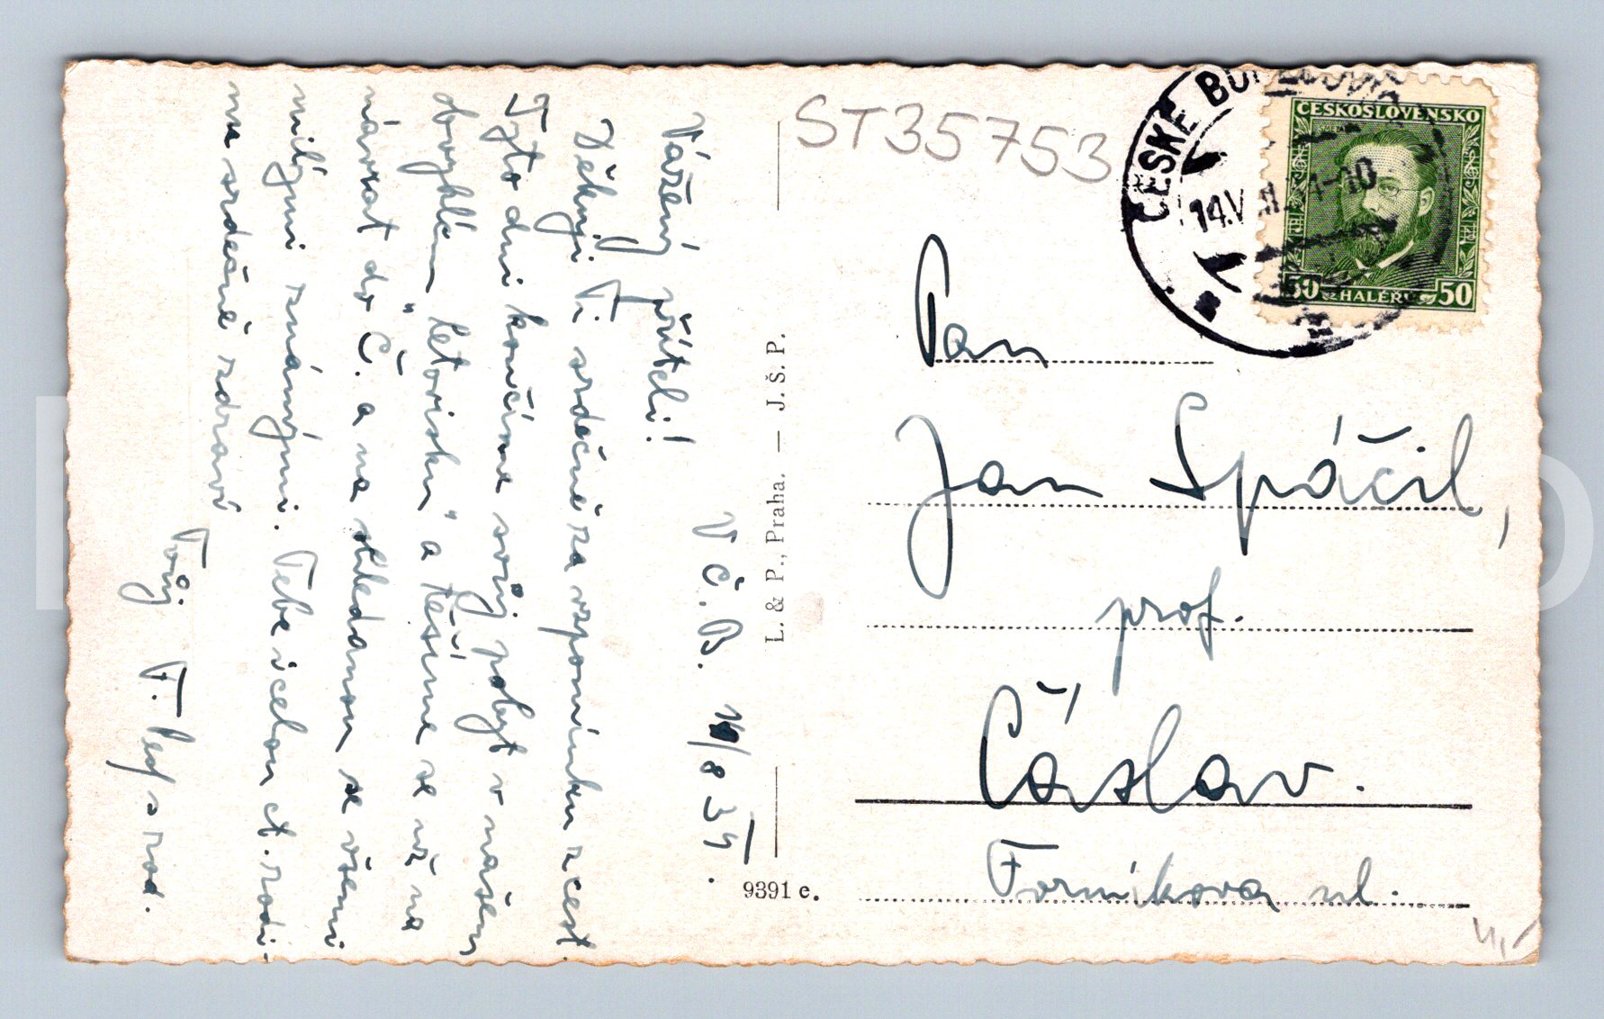 V Č. B. 10/8 34.
Vážený příteli!
Děkuji Ti srdečně za vzpomínku z cest.
Tyto dni končíme svůj pobyt v našem
obvyklém „letovisku“ a těšíme se už na
návrat do Č. a na shledanou se všemi
milými známými. Tebe i celou ct. rodi-
nu srdečně zdraví
Tvůj F.
s rod.
L. & P., Praha. — J. Š. P.
9391 c.
ST35753
ČESKÉ BUDĚJOVICE
14.V
ČESKOSLOVENSKO
50 HALÉŘŮ 50
Pan
Jan Spáčil,
prof.
Čáslav.
ul.